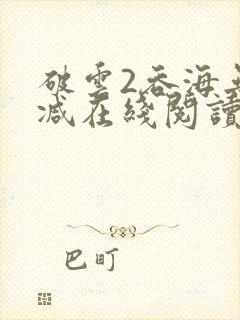 破雲2吞海
減在綫閱讀
巴町